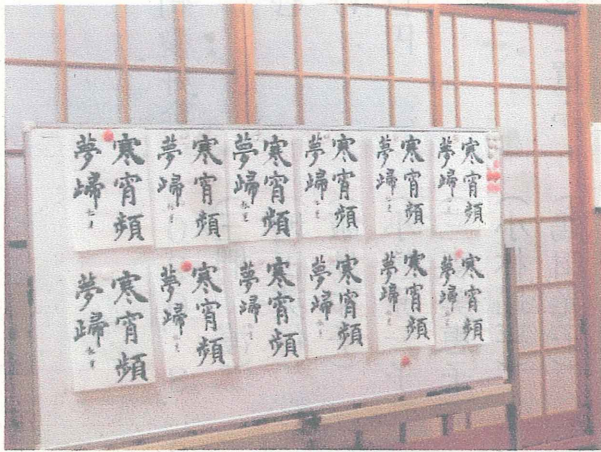 寒宵頻
夢歸
寒宵頻
夢歸
寒宵頻
夢歸
寒宵頻
夢歸
寒宵頻
夢歸
寒宵頻
夢歸
寒宵頻
夢歸
寒宵頻
夢歸
寒宵頻
夢歸
寒宵頻
夢歸
寒宵頻
夢歸
寒宵頻
夢歸